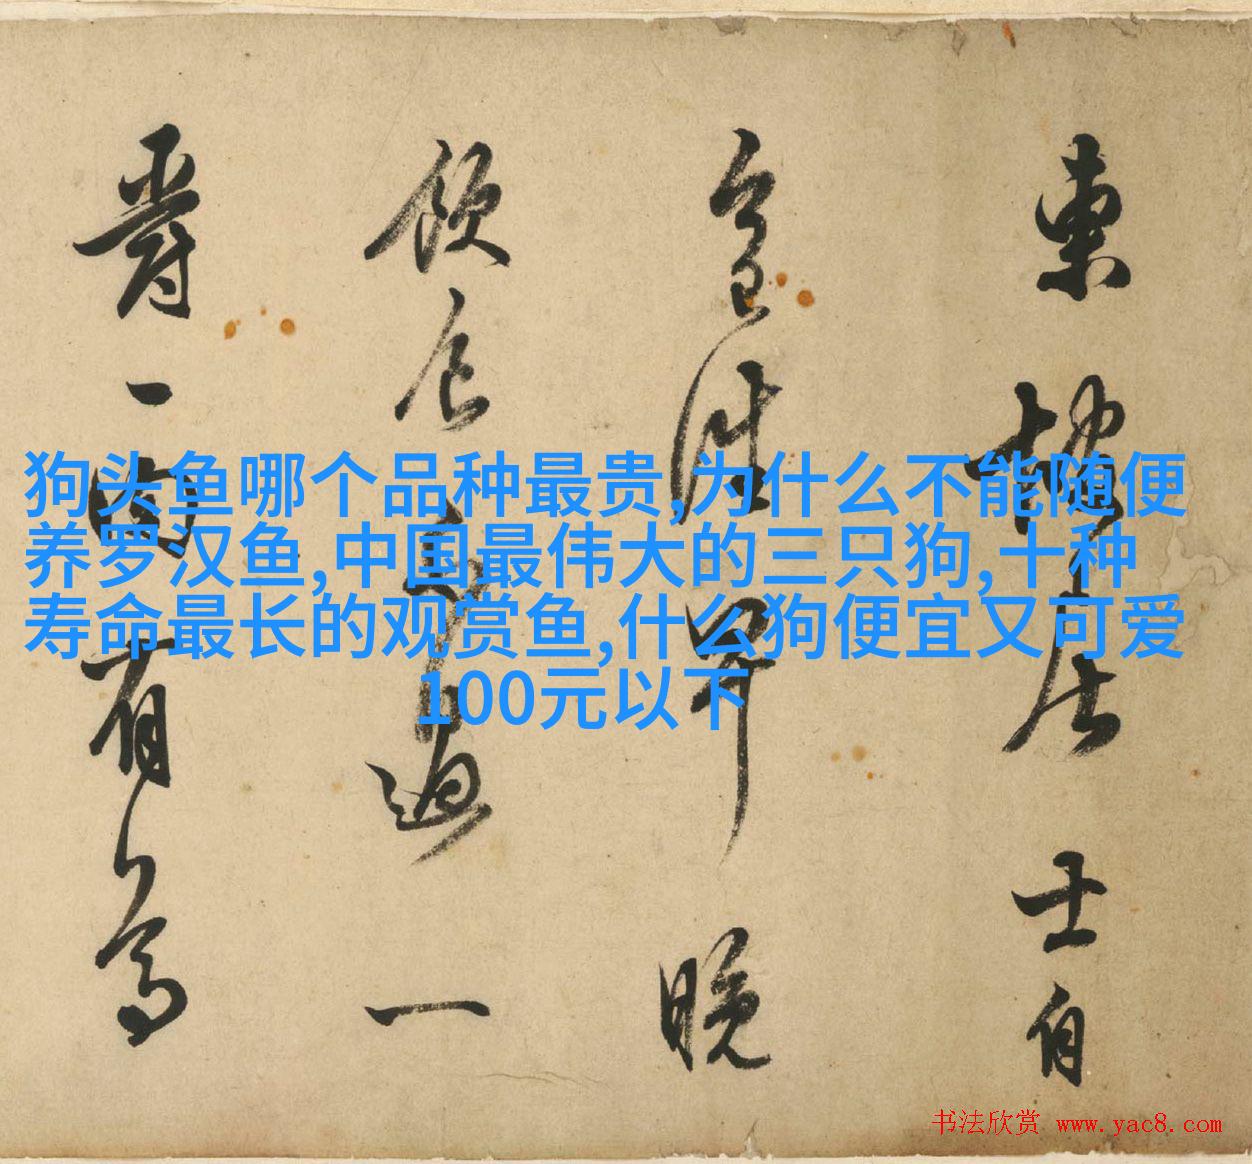 東坡居士自
今日往早晚
飲食不過一
爵一肉有
狗头鱼哪个品种最贵,为什么不能随便
养罗汉鱼,中国最伟大的三只狗,十种
寿命最长的观赏鱼,什么狗便宜又可爱
100元以下
书法欣赏 www.yac8.com